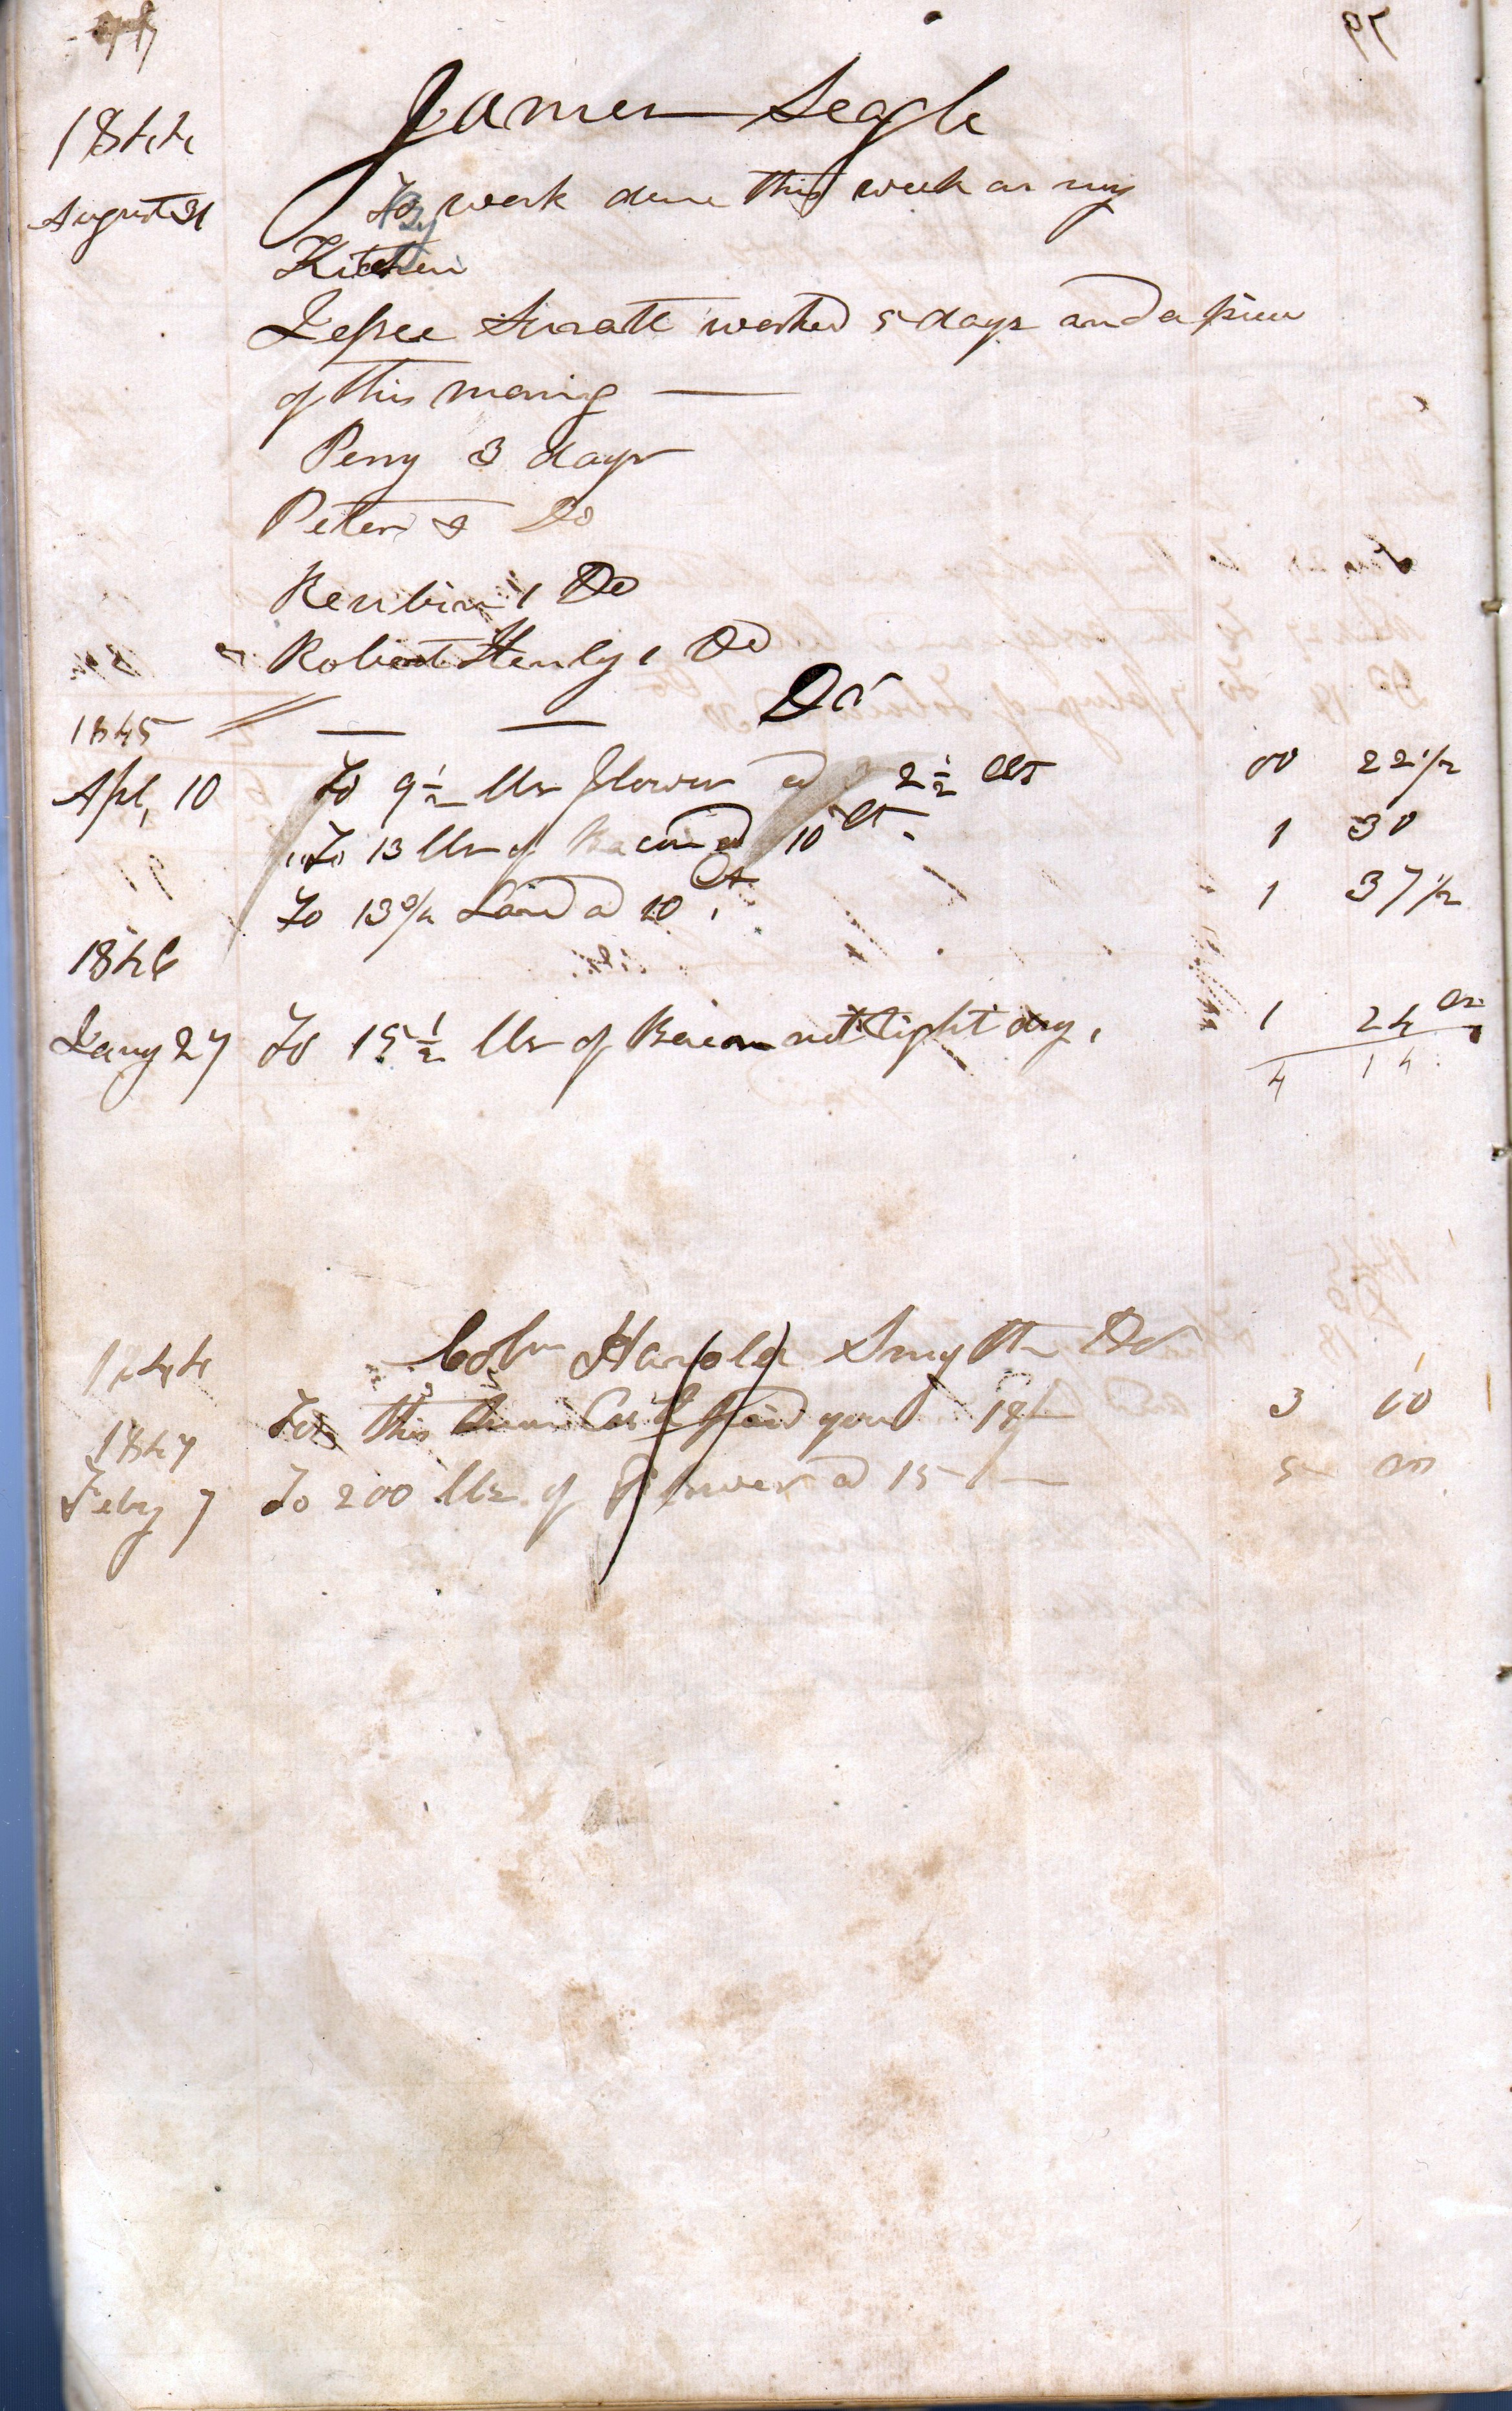 1844 James Seagle
August 31 By work done this week on my
Kitchen
Jessee Suratt worked 5 days and a piece
of this moring —
Perry 3 days
Peter & Do
Reubin 1 Do
Robert Henly 1 Do
1845 — — Dr
Apl, 10 To 9 1/2 lbs flower ad 2 1/2 cts 00 22 1/2
To 13 lbs of Bacon ad 10 cts. 1 30
To 13 3/4 Lard ad 10 ct. 1 37 1/2
1846
Jany 27 To 15 1/2 lbs of Bacon not tight dry, 1 24
4 14
1844 Colm Harold Smyth Dr
To this Sum Cash paid you 18/— 3 00
1847
Feby 7 To 200 lbs of Flower ad 15/— 5 00